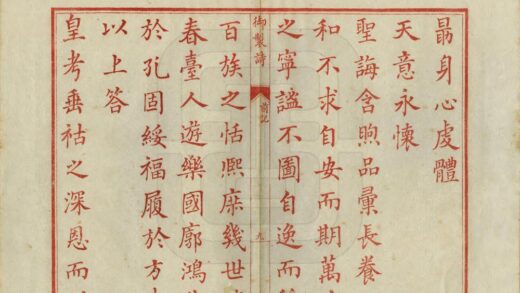 勗身心虔體
天意永懷
聖誨含煦品彙長養
和不求自安而期萬
之寧謐不圖自逸而
御製詩
九
百族之恬熙庶幾世
春臺人遊樂國廓鴻
於孔固綏福履於方
以上答
皇考垂祜之深恩而